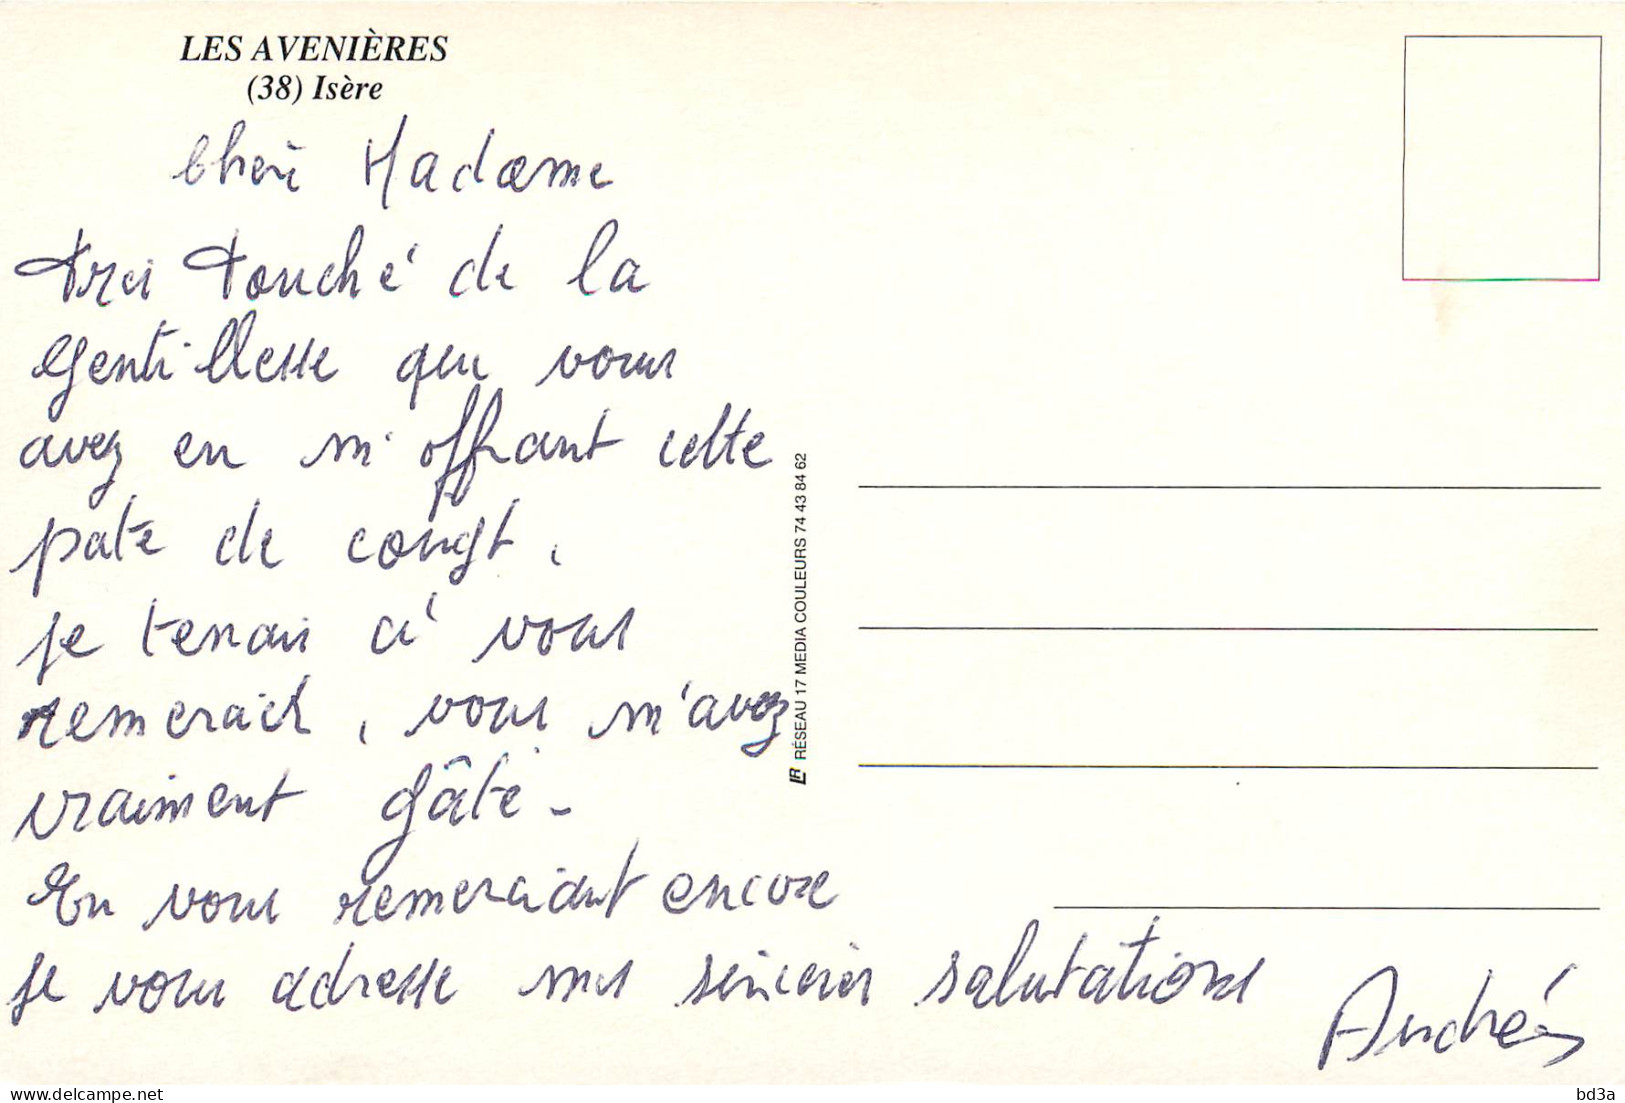 LES AVENIÈRES
(38) Isère
Chère Madame
très touché de la
gentillesse que vous
avez en m'offrant cette
pate de
je tenais à vous
remercier, vous m'avez
vraiment gâté -
En vous remerciant encore
je vous adresse mes sincères salutations
Andréa
RÉSEAU 17 MEDIA COULEURS 74 43 84 62
delcampe.net
bd3a